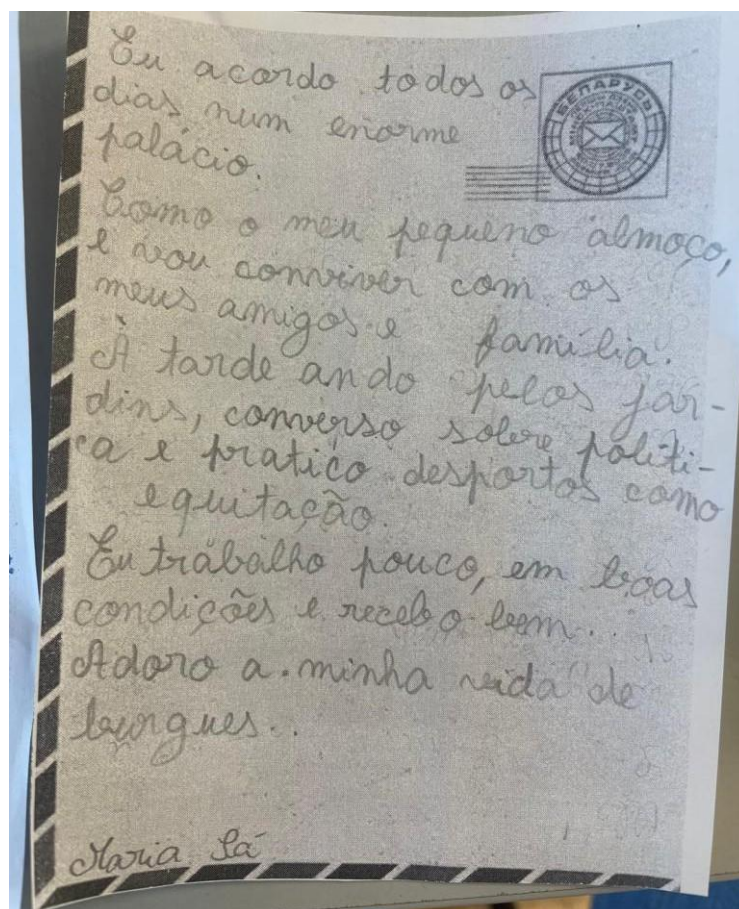 Eu acordo todos os
dias num enorme
palácio.
БЕЛАРУСЬ
Como o meu pequeno almoço,
e vou conviver com os
meus amigos e família.
À tarde ando pelos jar-
dins, converso sobre politi-
ca e pratico desportos como
equitação.
Eu trabalho pouco, em boas
condições e recebo bem.
Adoro a minha vida de
burgues..
Maria Sá